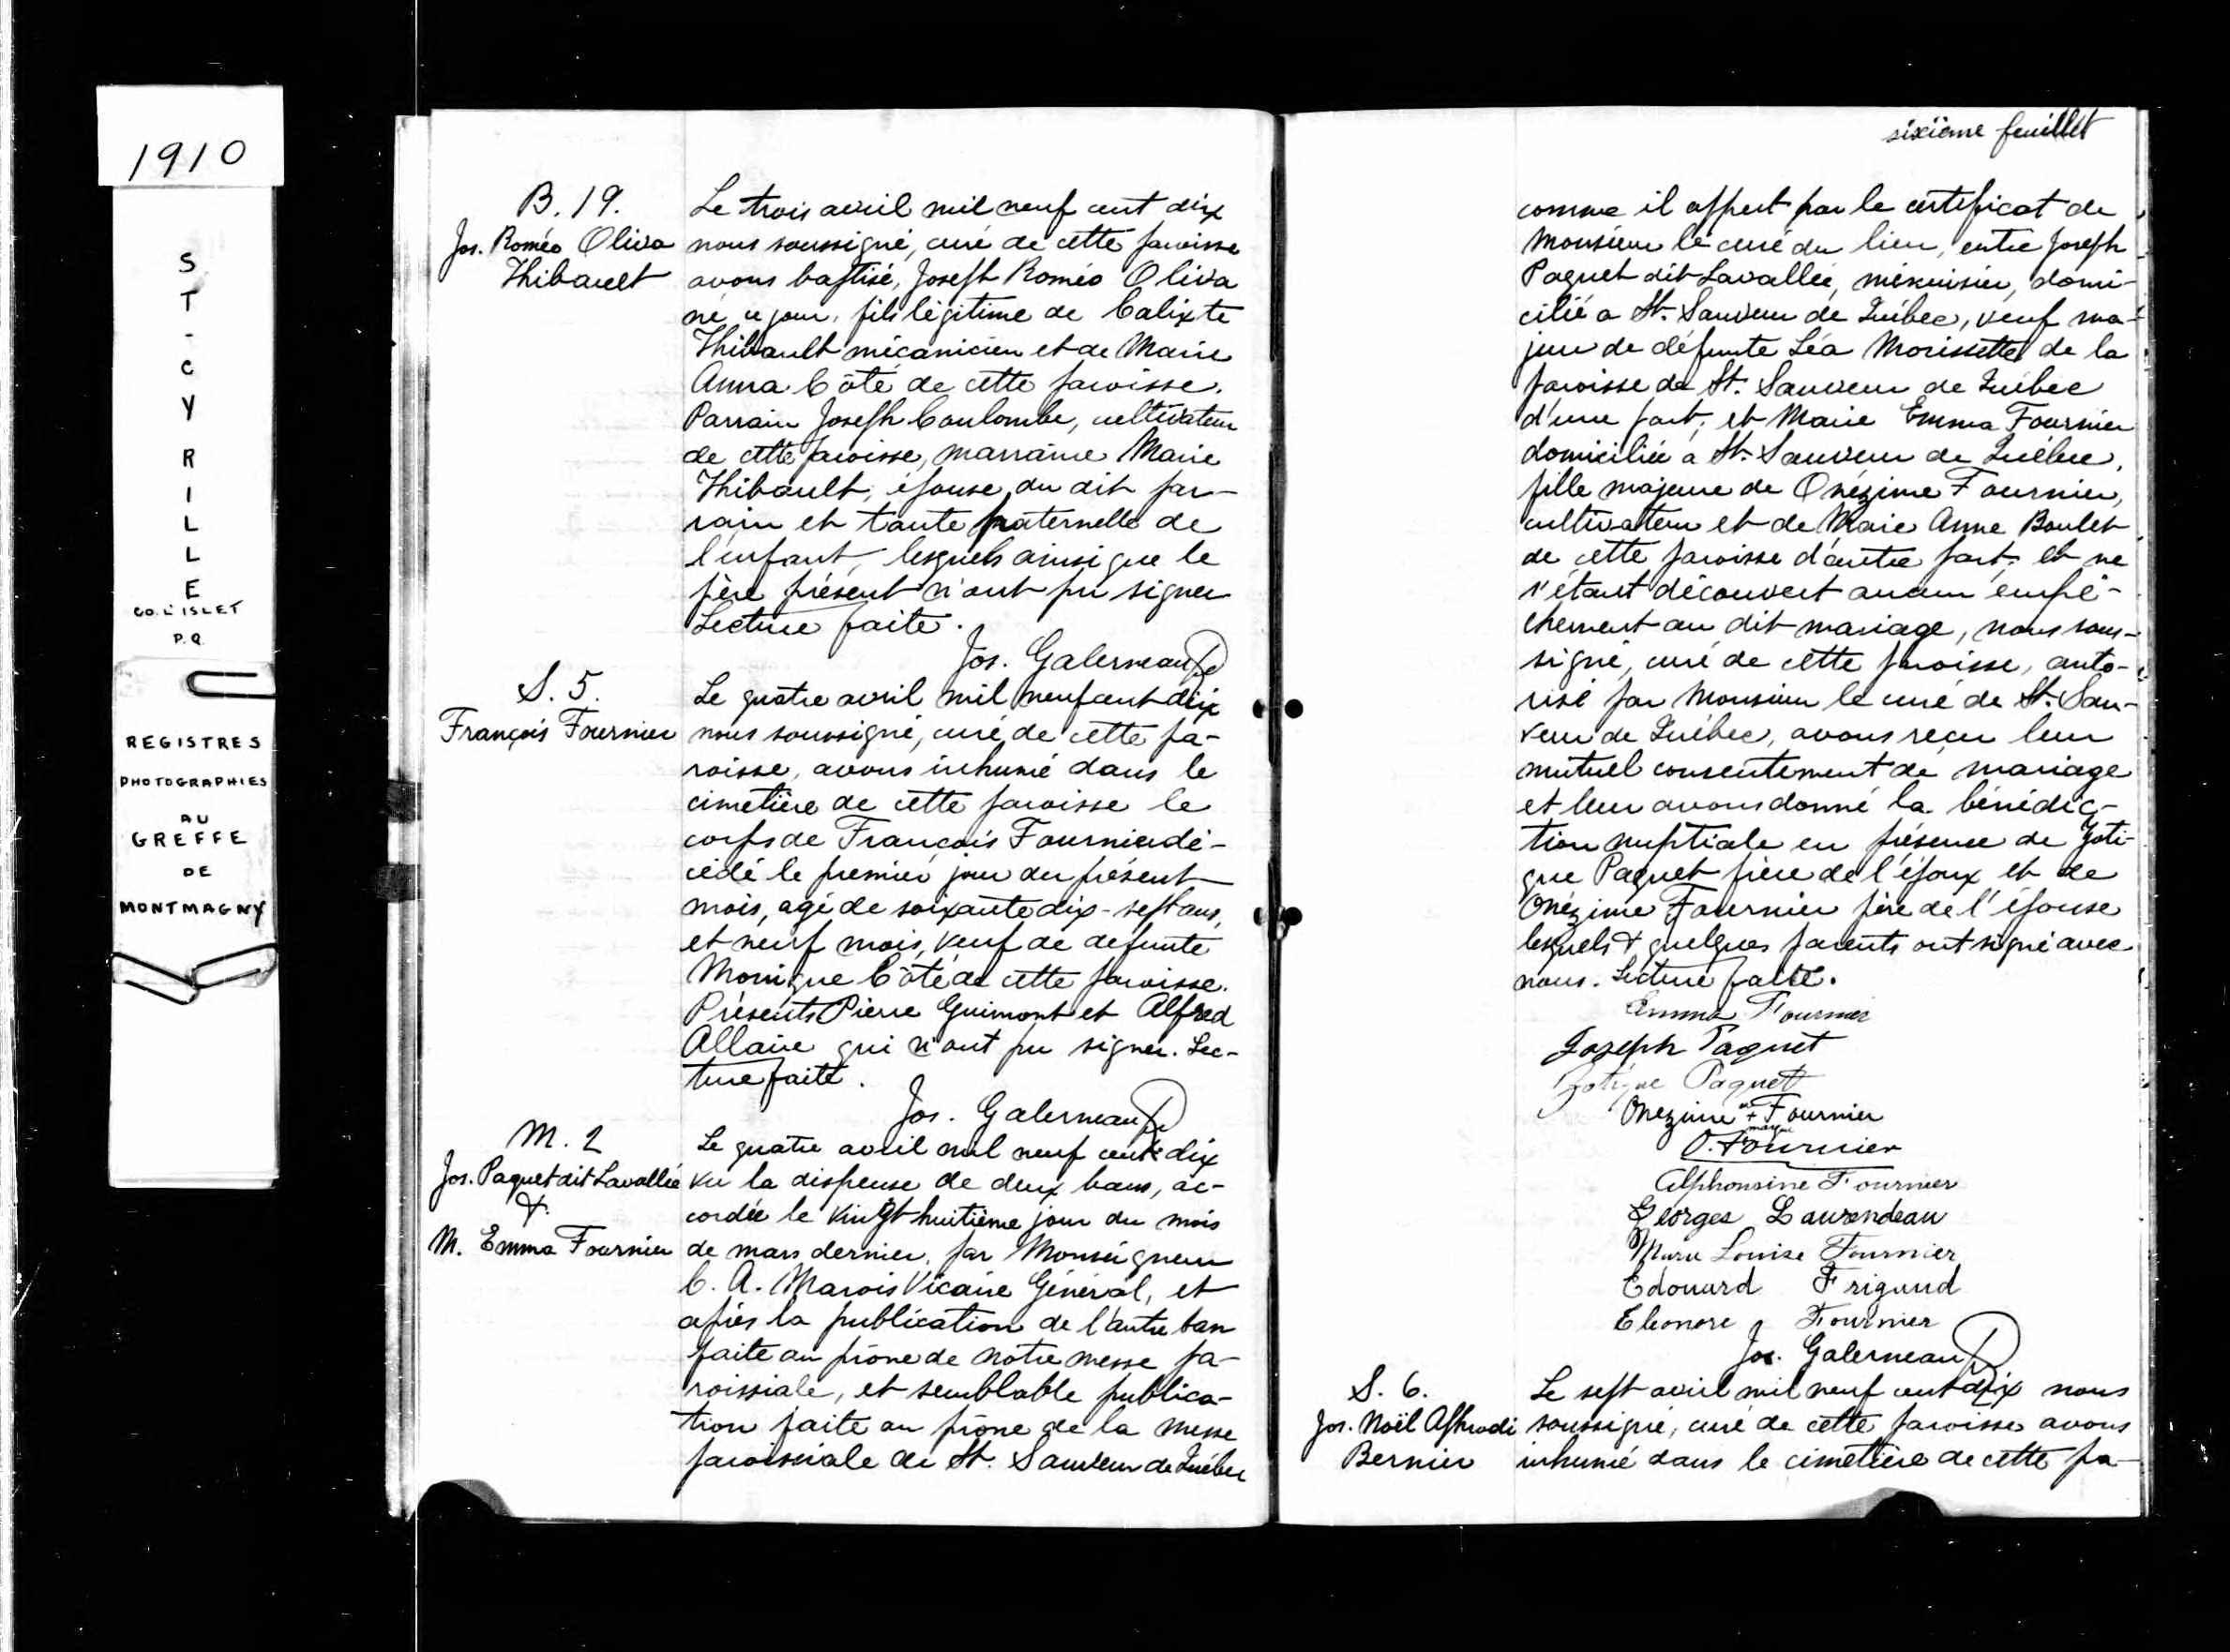 1910
ST-CYRILLE
CO. L'ISLET
P.Q.
REGISTRES
PHOTOGRAPHIES
AU
GREFFE
DE
MONTMAGNY
B. 19.
Jos. Roméo Oliva
Thibault
Le trois avril mil neuf cent dix
nous soussigné, curé de cette paroisse
avons baptisé, Joseph Roméo Oliva
né ce jour, fils légitime de Calixte
Thibault mécanicien et de Marie
Anna Côté de cette paroisse.
Parrain Joseph Coulombe, cultivateur
de cette paroisse, marraine Marie
Thibault, épouse du dit par-
rain et tante paternelle de
l'enfant, lesquels ainsi que le
père présent n'ont pu signer
Lecture faite.
Jos. Galerneau Ptre
S. 5.
François Fournier
Le quatre avril mil neuf cent dix
nous soussigné, curé de cette pa-
roisse, avons inhumé dans le
cimetière de cette paroisse le
corps de François Fournier dé-
cédé le premier jour du présent
mois, agé de soixante dix-sept ans,
et neuf mois, veuf de defunte
Monique Côté de cette paroisse.
Présents Pierre Guimont et Alfred
Allaire qui n'ont pu signer. Lec-
ture faite.
Jos. Galerneau Ptre
M. 2
Jos. Paquet dit Lavallée
&
M. Emma Fournier
Le quatre avril mil neuf cent dix
vu la dispense de deux bans, ac-
cordée le vingt huitième jour du mois
de mars dernier, par Monseigneur
C. A. Marois Vicaire Général, et
après la publication de l'autre ban
faite au prône de notre messe pa-
roissiale, et semblable publica-
tion faite au prône de la messe
paroissiale de St. Sauveur de Québec
sixième feuillet
comme il appert par le certificat de
Monsieur le curé du lieu, entre Joseph
Paquet dit Lavallée, ménuisier, domi-
cilié a St. Sauveur de Québec, veuf ma-
jeur de défunte Léa Morissette de la
paroisse de St. Sauveur de Québec
d'une part, et Marie Emma Fournier
domiciliée à St. Sauveur de Québec,
fille majeure de Onézime Fournier,
cultivateur et de Marie Anne Boulet
de cette paroisse d'autre part; et ne
s'étant découvert aucun empê-
chement au dit mariage, nous sous-
signé, curé de cette paroisse, auto-
risé par Monsieur le curé de St. Sau-
veur de Québec, avons reçu leur
mutuel consentement de mariage
et leur avons donné la bénédic-
tion nuptiale en présence de Zoti-
que Paquet frère de l'époux et de
Onézime Fournier père de l'épouse
lesquels & quelques parents ont signé avec
nous. Lecture faite.
Emma Fournier
Joseph Paquet
Zotique Paquet
Onezime sa + marque Fournier
O. Fournier
Alphonsine Fournier
Georges Laurendeau
Marie Louise Fournier
Edouard Frigaud
Eleonore Fournier
Jos. Galerneau Ptre
S. 6.
Jos. Noël
Bernier
Le sept avril mil neuf cent dix nous
soussigné, curé de cette paroisse avons
inhumé dans le cimetière de cette pa-